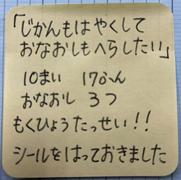 「じかんもはやくして
おなおしもへらしたい」
10まい 17ふん
おなおし 3つ
もくひょうたっせい!!
シールをはっておきました